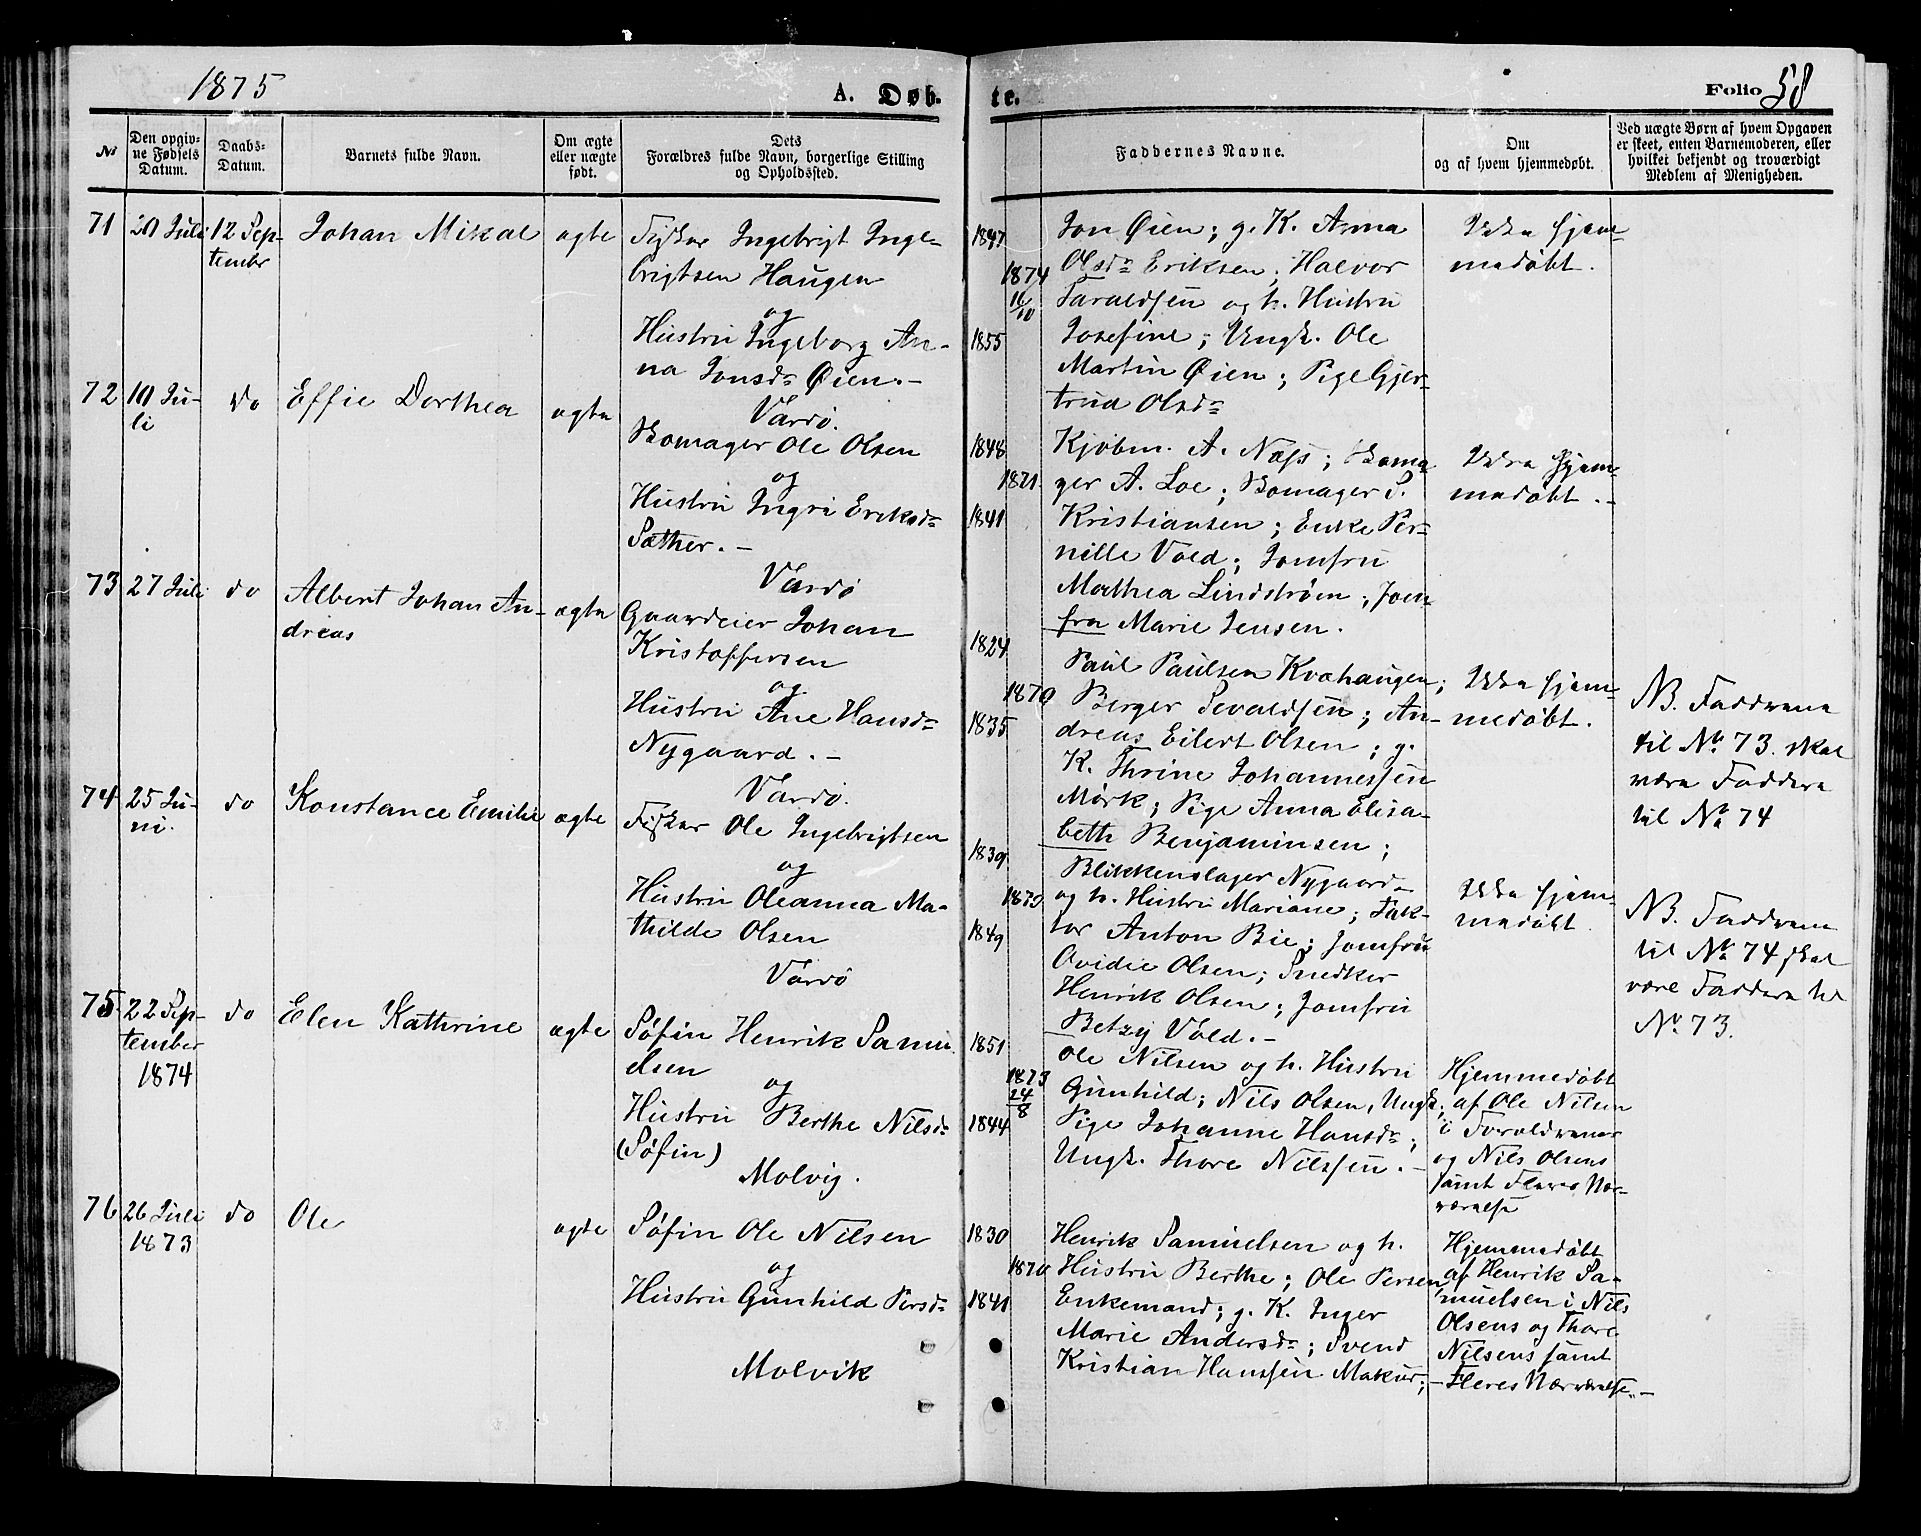 1875
A. Døb-
te.
Folio 58
No
Den opgiv-
ne Fødsels
Datum.
Daabs-
Datum.
Barnets fulde Navn.
Om ægte
eller uægte
født.
Dets
Forældres fulde Navn, borgerlige Stilling
og Opholdssted.
Faddernes Navne.
Om
og af hvem hjemmedøbt.
Ved uægte Børn af hvem Opgaven
er skeet, enten Barnemoderen, eller
hvilket bekjendt og troværdigt
Medlem af Menigheden.
71
20 Juli
12 Sep-
tembr
Johan Mikal
ægte
Fisker Ingebrigt Inge-
brigtsen Haugen
og
Hustru Ingeborg An-
na Jonsdr Øien.-
Vardø.
1847
1874
11/10
1855
Jon Øien; g. K. Anna
Olsdr Eriksen; Halvor
Taraldsen og h. Hustru
Josefine; Ungk. Ole
Martin Øien; Pige Gjer-
trud Olsdr
Ikke hjem-
medøbt.
72
10 Ju-
li
do
Effie Dorthea
ægte
Skomager Ole Olsen
og
Hustru Ingri Eriksdr
Sæther.-
Vardø
1848
1871
1841
Kjøbm. A. Næss; Skoma-
ger A. Loe; Skomager P.
Kristiansen; Enke Per-
nille Vold; Jomfru
Mathea Lindstrøm; Jom-
fru Marie Jensen.
Ikke hjem-
medøbt.-
73
27 Juli
do
Albert Johan An-
dreas
ægte
Gaardeier Johan
Kristoffersen
og
Hustru Ane Hansdr
Nygaard.-
Vardø.
1824
1870
1835
Paul Paulsen Kvæhaugen;
Berger Sevaldsen; An-
dreas Eilert Olsen; g.
K. Thrine Johannessen
Mørk; Pige Anna Elisa-
beth Benjaminsen;
Ikke hjem-
medøbt.
NB. Fadderne
til No 73. skal
være Faddere
til No 74
74
25 Ju-
ni.
do
Konstance Emilie
ægte
Fisker Ole Ingebrigtsen
og
Hustru Oleanna Ma-
thilde Olsen
Vardø
1839
1873
1849
Blikkenslager Nygaard
og h. Hustru Mariane; Fak-
tor Anton Bie; Jomfru
Ovidie Olsen; Snedker
Henrik Olsen; Jomfru
Betzy Vold.-
Ikke hjem-
medøbt
NB. Fadderne
til No 74 skal
være Faddere til
No 73.
75
22 Sep-
tember
1874
do
Elen Kathrine
ægte
Søfin Henrik Samu-
elsen
og
Hustru Berthe Nilsdr
(Søfin)
Molvig.
1851
1873
24/8
1844
Ole Nilsen og h. Hustru
Gunhild; Nils Olsen, Ungk;
Pige Johanne Hansdr;
Ungk. Thore Nilssen.-
Hjemmedøbt
af Ole Nilsen
i Forældrenes
og Nils Olsens
samt Fleres Nær-
værelse
76
26 Juli
1873
do
Ole
ægte
Søfin Ole Nilsen
og
Hustru Gunhild Persdr
Molvik
1830
1870
1841
Henrik Samuelsen og h.
Hustru Berthe; Ole Persen,
Enkemand; g. K. Inger
Marie Andersdr; Svend
Kristian Hanssen Makur;-
Hjemmedøbt
af Henrik Sa-
muelsen i Nils
Olsens og Thore
Nilsens samt
Fleres Nærværelse.-